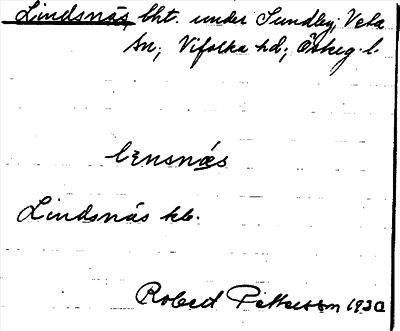 Lindsnäs, lht. under Sundby, Veta
sn, Vifolka hd, Österg. l.
lensnæs
Lindsnäs kb.
Robert Petterson 1930